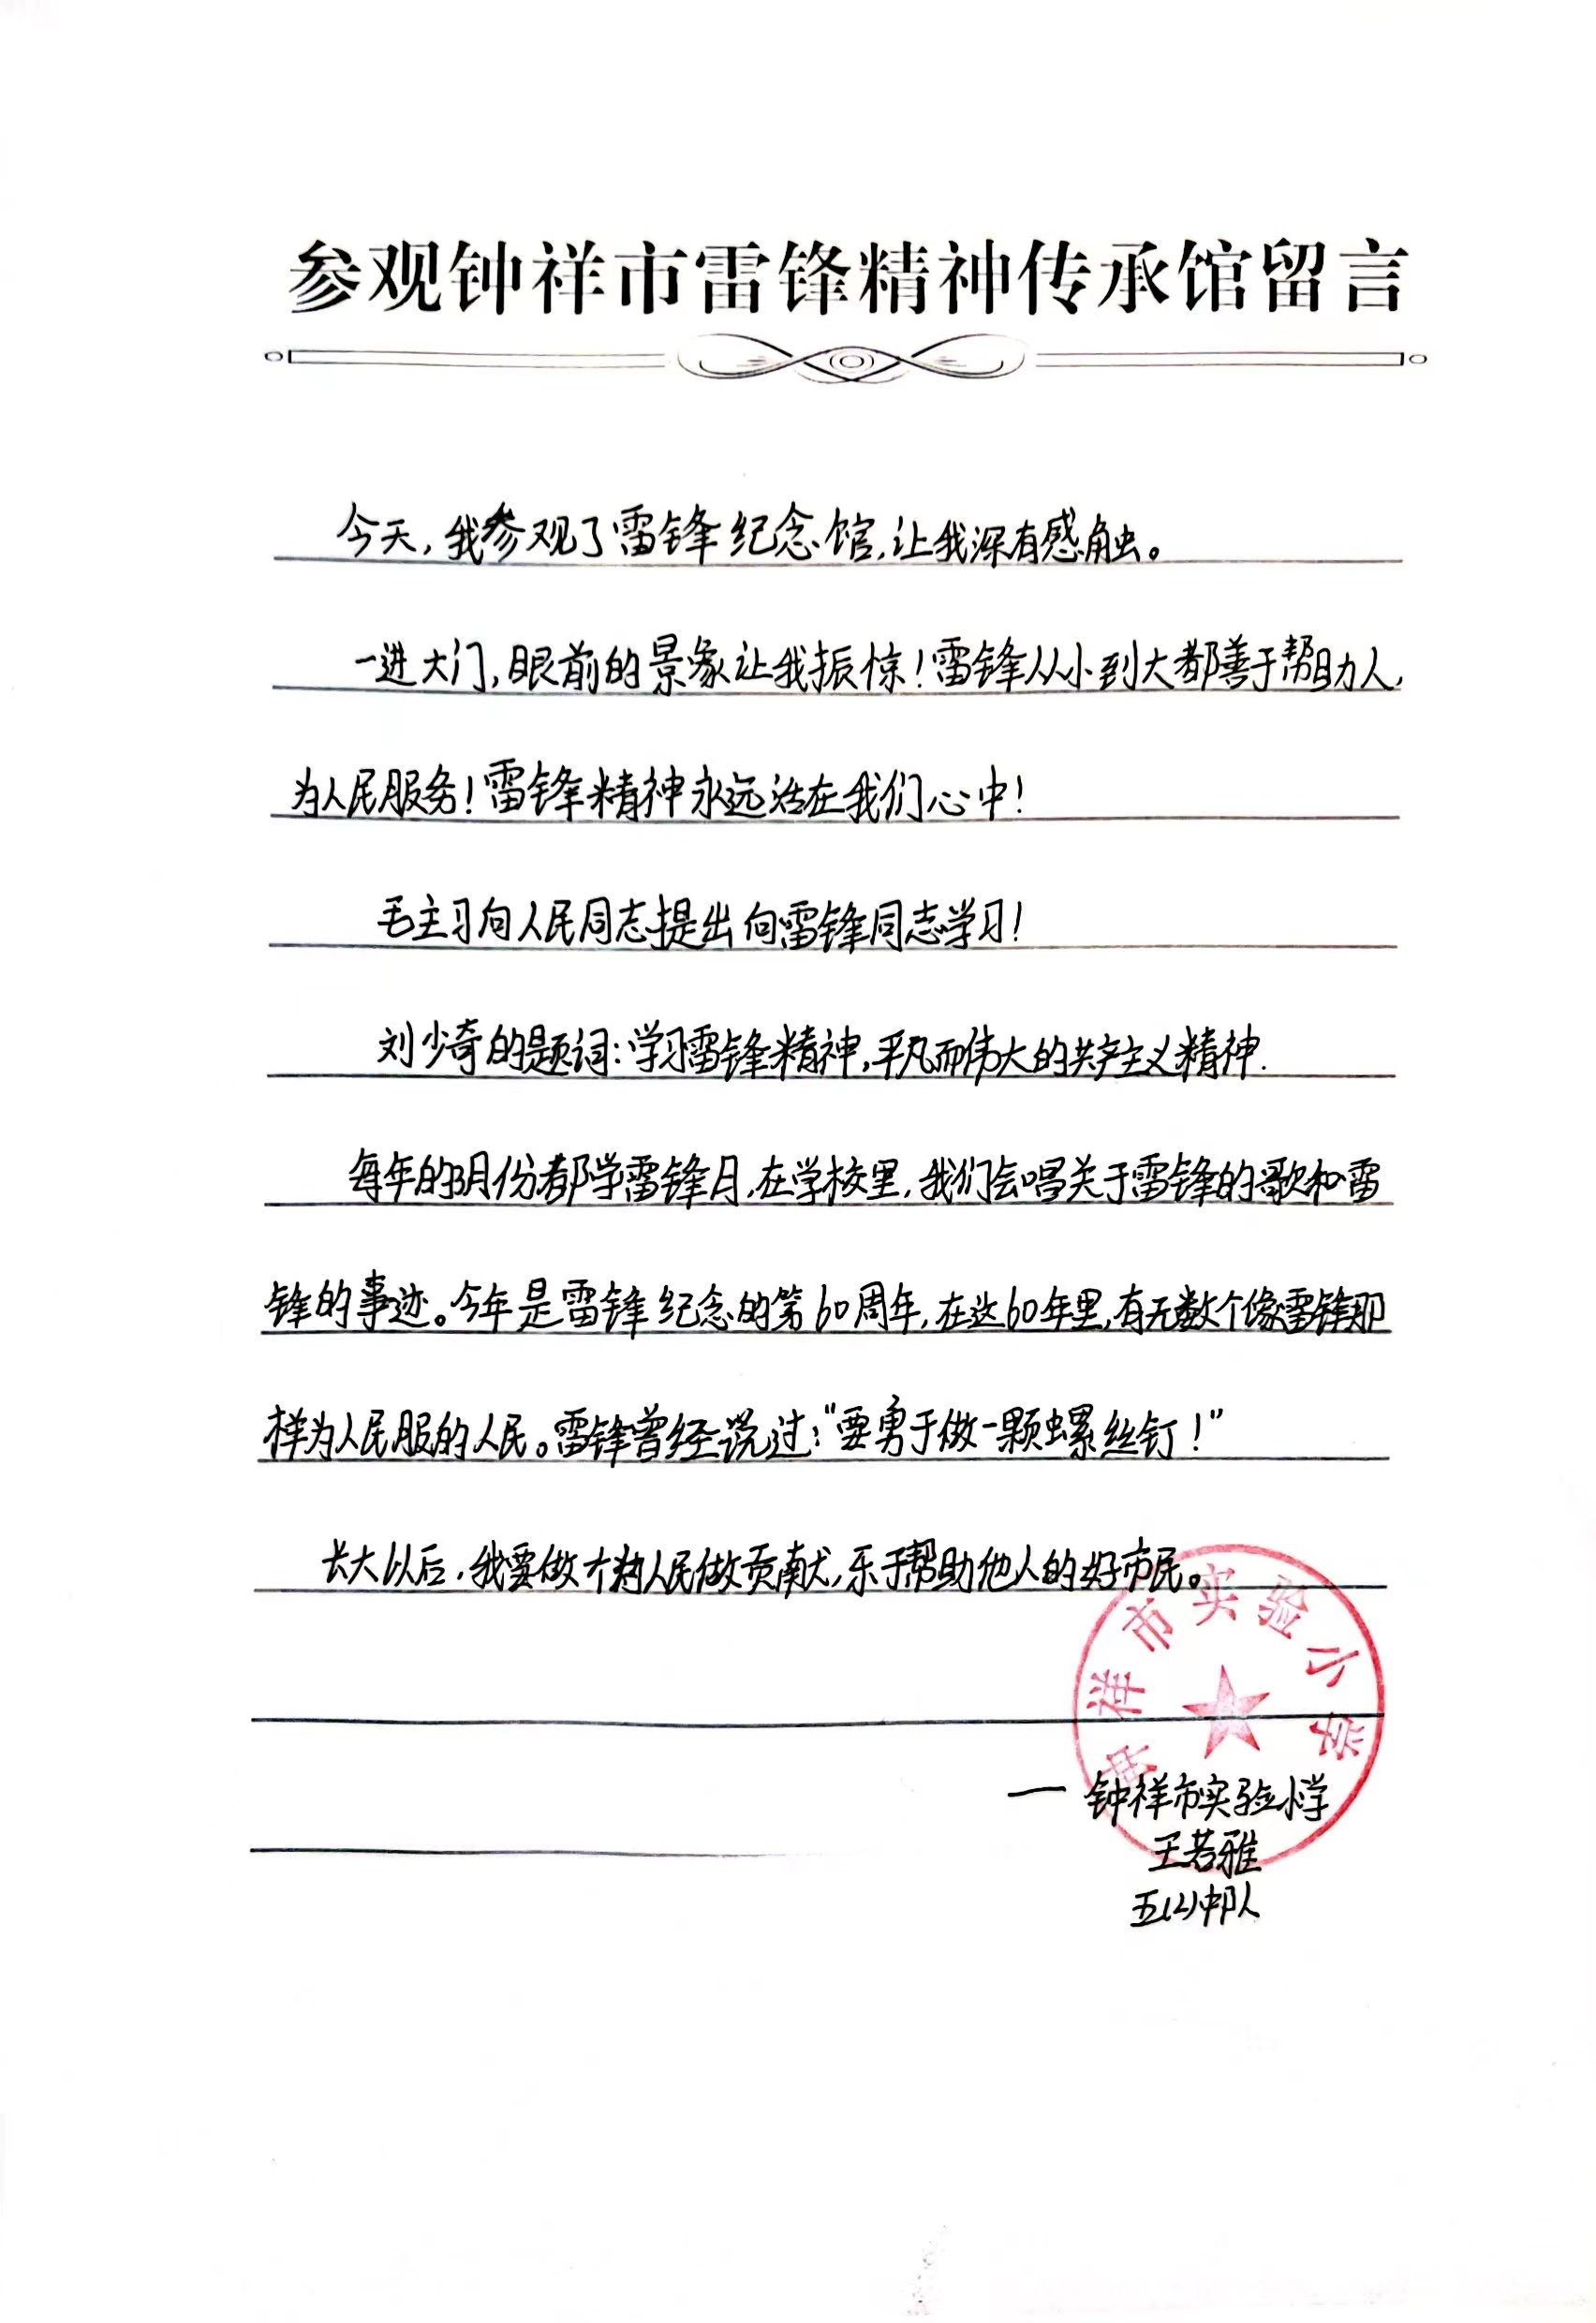 参观钟祥市雷锋精神传承馆留言
今天，我参观了雷锋纪念馆，让我深有感触。
一进大门，眼前的景象让我振惊！雷锋从小到大都善于帮助人，
为人民服务！雷锋精神永远活在我们心中！
毛主习向人民同志提出向雷锋同志学习！
刘少奇的题词：学习雷锋精神，平凡而伟大的共产主义精神.
每年的3月份都学雷锋月，在学校里，我们会唱关于雷锋的歌和雷
锋的事迹。今年是雷锋纪念的第60周年，在这60年里，有无数个像雷锋那
样为人民服的人民。雷锋曾经说过：“要勇于做一颗螺丝钉！”
长大以后，我要做个为人民做贡献，乐于帮助他人的好市民。
钟祥市实验小学
一 钟祥市实验小学
王若雅
五(2)中队